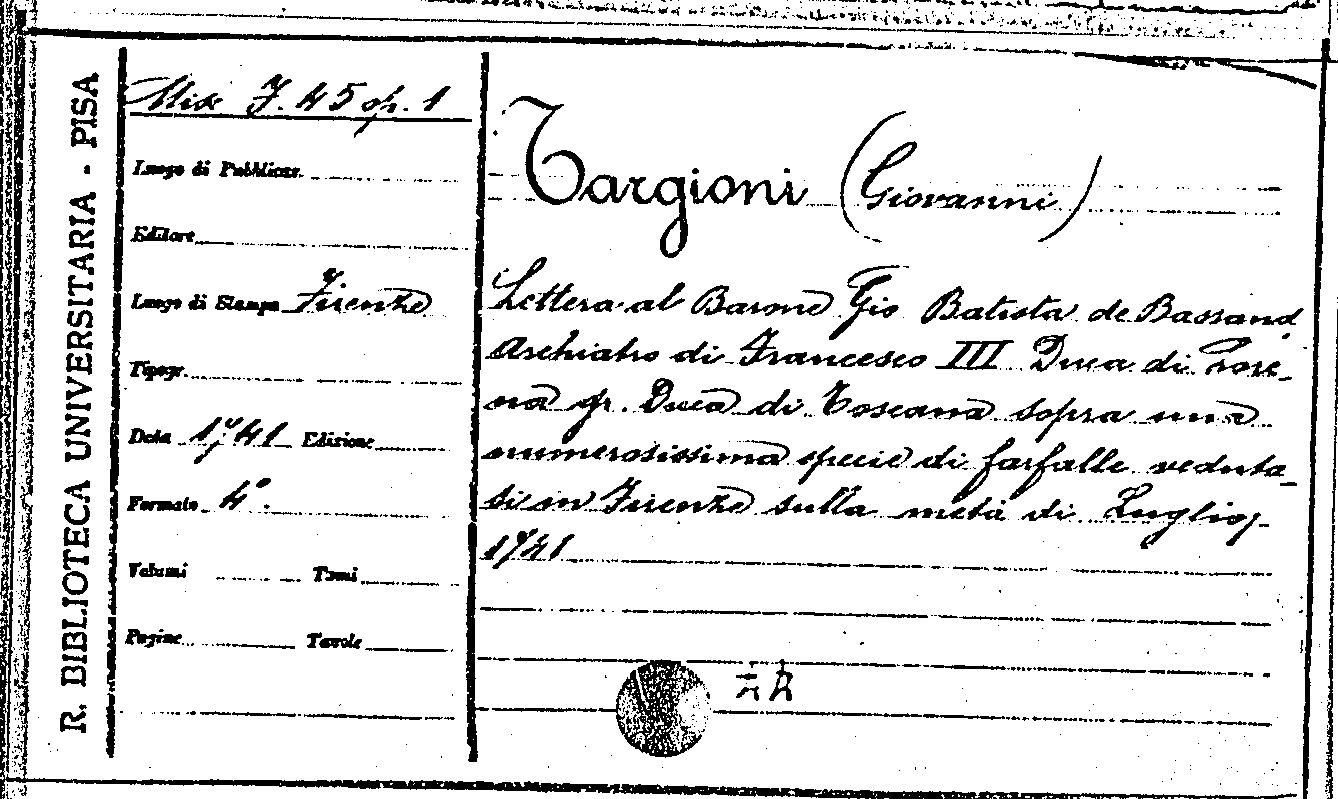 R. BIBLIOTECA UNIVERSITARIA - PISA
Misc F. 45 op. 1
Luogo di Pubblicaz.
Editore
Luogo di Stampa Firenze
Tipogr.
Data 1741 Edizione
Formato 4°.
Volumi Tomi
Pagine Tavole
Targioni (Giovanni)
Lettera al Barone Gio Batista de Bassand
Archiatro di Francesco III Duca di Lore-
na gr. Duca di Toscana sopra una
numerosissima specie di farfalle veduta-
si in Firenze sulla metà di Luglio
1741